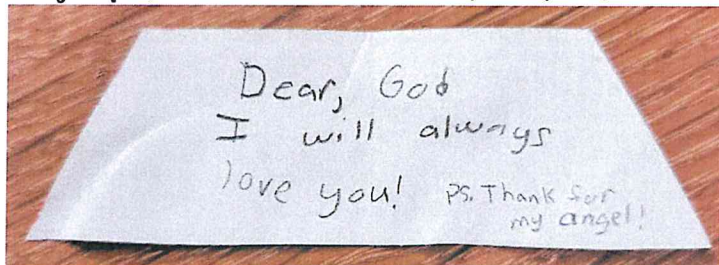 Dear, God
I will always
love you!
PS. Thank for
my angel!